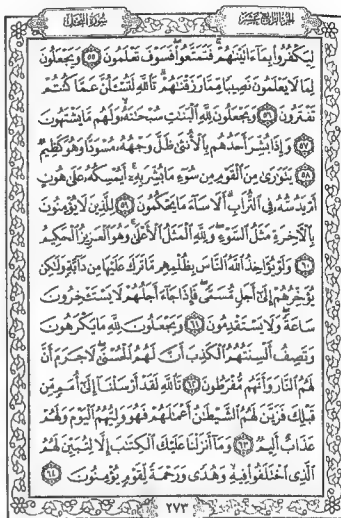 الجزء الرابع عشر سورة النحل
لِيَكْفُرُوا۟ بِمَآ ءَاتَيْنَٰهُمْ ۚ فَتَمَتَّعُوا۟ ۖ فَسَوْفَ تَعْلَمُونَ ٥٥ وَيَجْعَلُونَ
لِمَا لَا يَعْلَمُونَ نَصِيبًا مِّمَّا رَزَقْنَٰهُمْ ۗ تَٱللَّهِ لَتُسْـَٔلُنَّ عَمَّا كُنتُمْ
تَفْتَرُونَ ٥٦ وَيَجْعَلُونَ لِلَّهِ ٱلْبَنَٰتِ سُبْحَٰنَهُۥ ۙ وَلَهُم مَّا يَشْتَهُونَ
٥٧ وَإِذَا بُشِّرَ أَحَدُهُم بِٱلْأُنثَىٰ ظَلَّ وَجْهُهُۥ مُسْوَدًّا وَهُوَ كَظِيمٌ
٥٨ يَتَوَٰرَىٰ مِنَ ٱلْقَوْمِ مِن سُوٓءِ مَا بُشِّرَ بِهِۦٓ ۚ أَيُمْسِكُهُۥ عَلَىٰ هُونٍ
أَمْ يَدُسُّهُۥ فِى ٱلتُّرَابِ ۗ أَلَا سَآءَ مَا يَحْكُمُونَ ٥٩ لِلَّذِينَ لَا يُؤْمِنُونَ
بِٱلْـَٔاخِرَةِ مَثَلُ ٱلسَّوْءِ ۖ وَلِلَّهِ ٱلْمَثَلُ ٱلْأَعْلَىٰ ۚ وَهُوَ ٱلْعَزِيزُ ٱلْحَكِيمُ
٦٠ وَلَوْ يُؤَاخِذُ ٱللَّهُ ٱلنَّاسَ بِظُلْمِهِم مَّا تَرَكَ عَلَيْهَا مِن دَآبَّةٍ وَلَٰكِن
يُؤَخِّرُهُمْ إِلَىٰٓ أَجَلٍ مُّسَمًّى ۖ فَإِذَا جَآءَ أَجَلُهُمْ لَا يَسْتَـْٔخِرُونَ
سَاعَةً ۖ وَلَا يَسْتَقْدِمُونَ ٦١ وَيَجْعَلُونَ لِلَّهِ مَا يَكْرَهُونَ
وَتَصِفُ أَلْسِنَتُهُمُ ٱلْكَذِبَ أَنَّ لَهُمُ ٱلْحُسْنَىٰ ۖ لَا جَرَمَ أَنَّ
لَهُمُ ٱلنَّارَ وَأَنَّهُم مُّفْرَطُونَ ٦٢ تَٱللَّهِ لَقَدْ أَرْسَلْنَآ إِلَىٰٓ أُمَمٍ مِّن
قَبْلِكَ فَزَيَّنَ لَهُمُ ٱلشَّيْطَٰنُ أَعْمَٰلَهُمْ فَهُوَ وَلِيُّهُمُ ٱلْيَوْمَ وَلَهُمْ
عَذَابٌ أَلِيمٌ ٦٣ وَمَآ أَنزَلْنَا عَلَيْكَ ٱلْكِتَٰبَ إِلَّا لِتُبَيِّنَ لَهُمُ
ٱلَّذِى ٱخْتَلَفُوا۟ فِيهِ ۙ وَهُدًى وَرَحْمَةً لِّقَوْمٍ يُؤْمِنُونَ ٦٤
٢٧٣